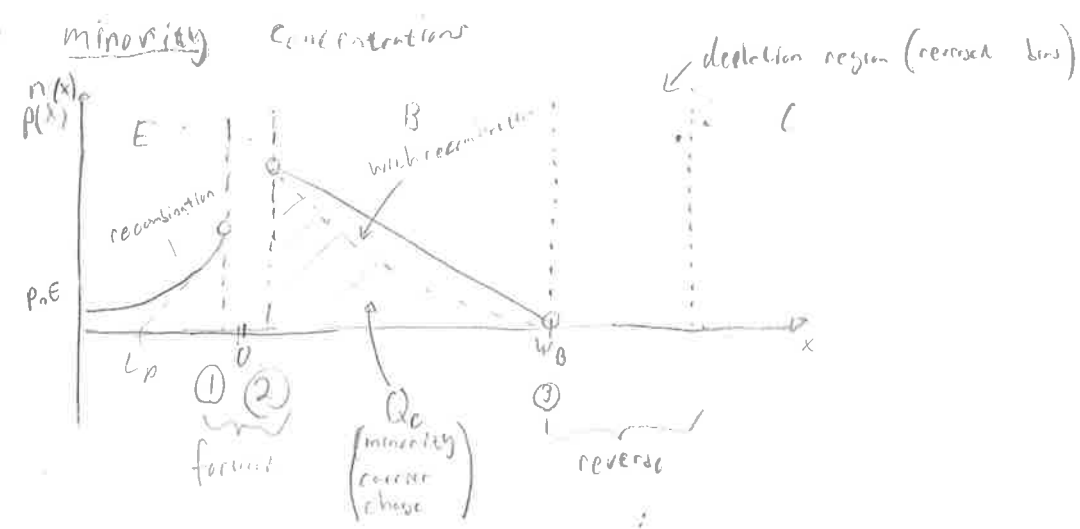 minority concentrations
depletion region (reversed bias)
n(x)
p(x)
E
B
C
with recombination
recombination
pnE
Lp
0
WB
x
① ② ③
forward
reverse
Qe
(minority
carrier
charge)